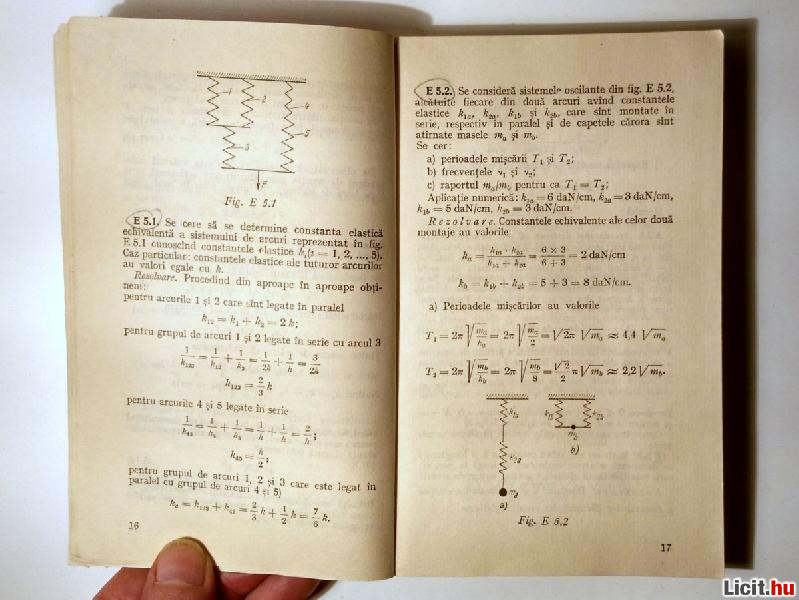 1
2
4
3
5
F
Fig. E 5.1
E 5.1. Se cere să se determine constanta elastică
echivalentă a sistemului de arcuri reprezentat în fig.
E 5.1 cunoscînd constantele elastice k_i(i = 1, 2, ..., 5).
Caz particular: constantele elastice ale tuturor arcurilor
au valori egale cu k.
Rezolvare. Procedînd din aproape în aproape obți-
nem:
pentru arcurile 1 și 2 care sînt legate în paralel
k₁₂ = k₁ + k₂ = 2k;
pentru grupul de arcuri 1 și 2 legate în serie cu arcul 3
1/k₁₂₃ = 1/k₁₂ + 1/k₃ = 1/2k + 1/k = 3/2k
k₁₂₃ = 2/3 k
pentru arcurile 4 și 5 legate în serie
1/k₄₅ = 1/k₄ + 1/k₅ = 1/k + 1/k = 2/k;
k₄₅ = k/2;
pentru grupul de arcuri 1, 2 și 3 care este legat în
paralel cu grupul de arcuri 4 și 5)
kₑ = k₁₂₃ + k₄₅ = 2/3 k + 1/2 k = 7/6 k.
16
E 5.2. Se consideră sistemele oscilante din fig. E 5.2,
alcătuite fiecare din două arcuri avînd constantele
elastice k₁ₐ, k₂ₐ, k₁b și k₂b, care sînt montate în
serie, respectiv în paralel și de capetele cărora sînt
atîrnate masele mₐ și m_b.
Se cer:
a) perioadele mișcării T₁ și T₂;
b) frecvențele ν₁ și ν₂;
c) raportul mₐ/m_b pentru ca T₁ = T₂;
Aplicație numerică: k₁ₐ = 6 daN/cm, k₂ₐ = 3 daN/cm,
k₁b = 5 daN/cm, k₂b = 3 daN/cm.
Rezolvare. Constantele echivalente ale celor două
montaje au valorile
kₐ = k₁ₐ · k₂ₐ / k₁ₐ + k₂ₐ = 6 × 3 / 6 + 3 = 2 daN/cm
k_b = k₁b + k₂b = 5 + 3 = 8 daN/cm.
a) Perioadele mișcărilor au valorile
T₁ = 2π √mₐ/kₐ = 2π √mₐ/2 = √2π √mₐ ≈ 4,4 √mₐ
T₂ = 2π √m_b/k_b = 2π √m_b/8 = √2/2 π √m_b ≈ 2,2 √m_b.
k₁ₐ
k₁b
k₂b
m_b
b)
k₂ₐ
mₐ
a)
Fig. E 5.2
17
Licit.hu